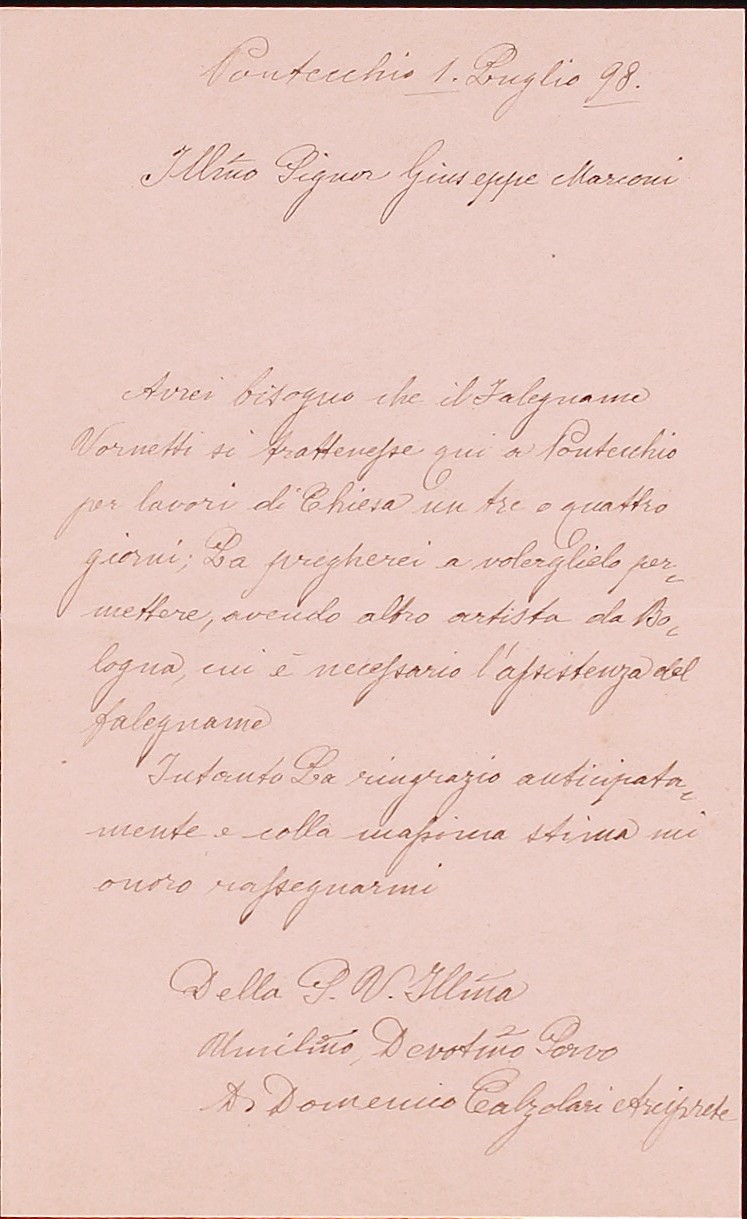 Pontecchio 1. Luglio 98.
Illm̃o Signor Giuseppe Marconi
Avrei bisogno che il Falegname
Vornetti si trattenesse qui a Pontecchio
per lavori di Chiesa un tre o quattro
giorni; La pregherei a volerglielo per=
mettere, avendo altro artista da Bo=
logna, cui è necessario l'assistenza del
falegname
Intanto La ringrazio anticipata=
mente e colla massima stima mi
onoro rassegnarmi
Della S. V. Illm̃a
Umilm̃o, Devotm̃o Servo
D. Domenico Calzolari Arciprete